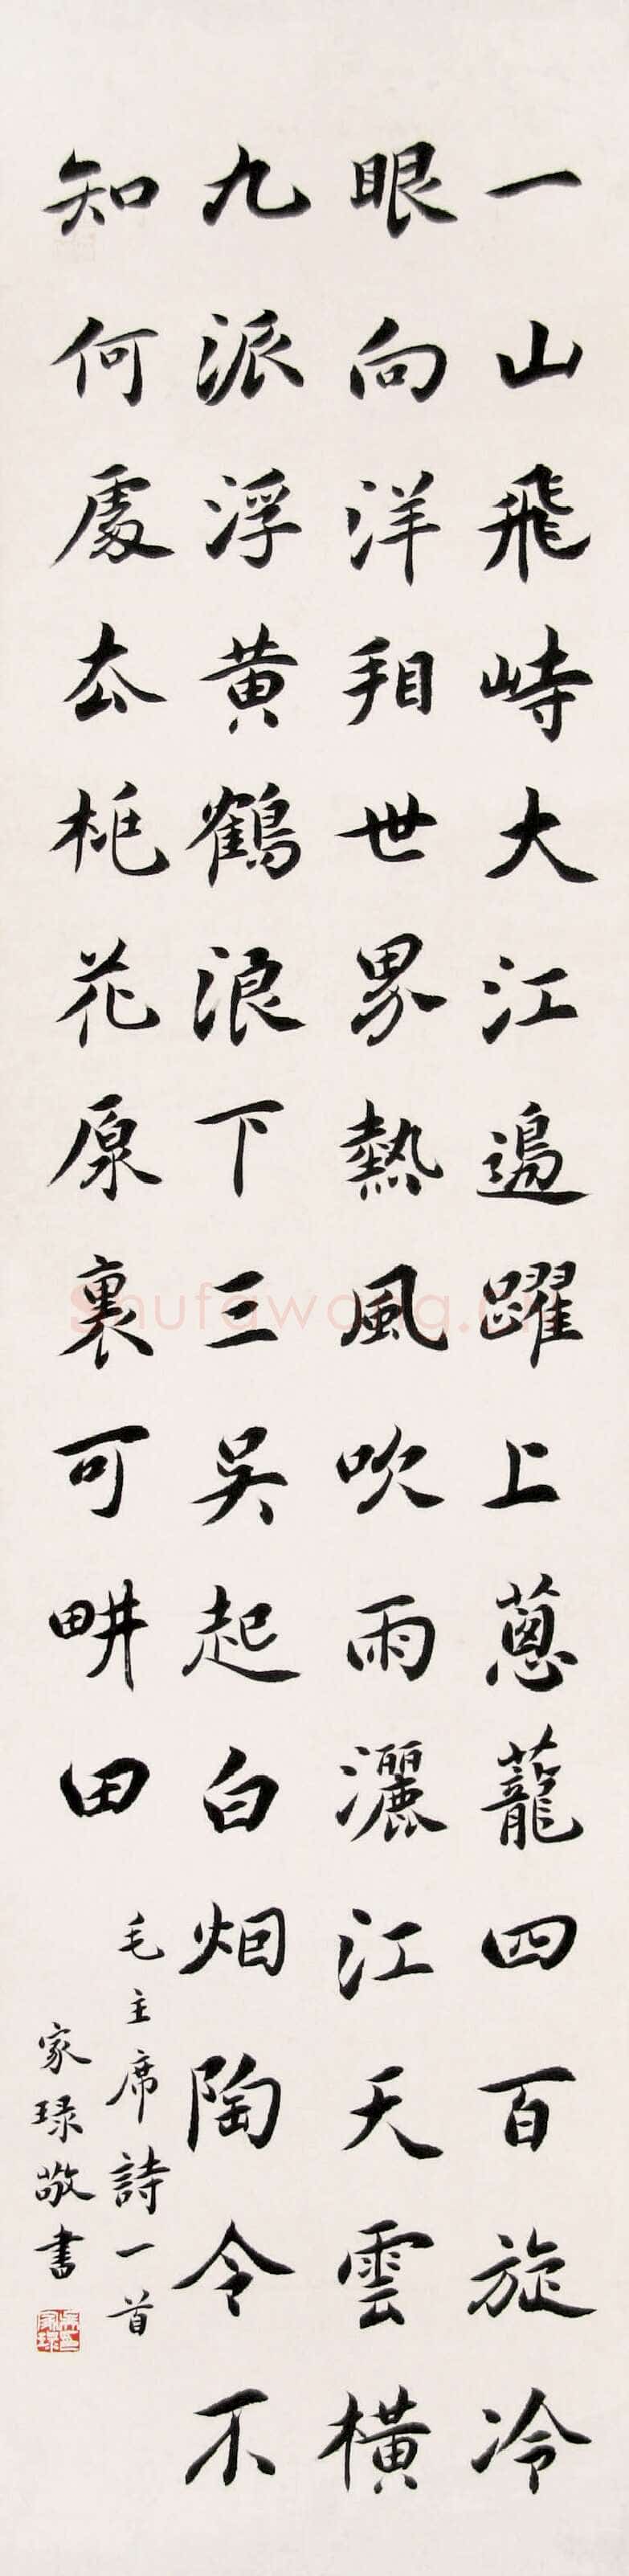 一山飛峙大江邊躍上蔥蘢四百旋冷
眼向洋看世界熱風吹雨灑江天雲橫
九派浮黄鶴浪下三吴起白烟陶令不
知何處去桃花原裏可畊田
毛主席詩一首
家琭敬書